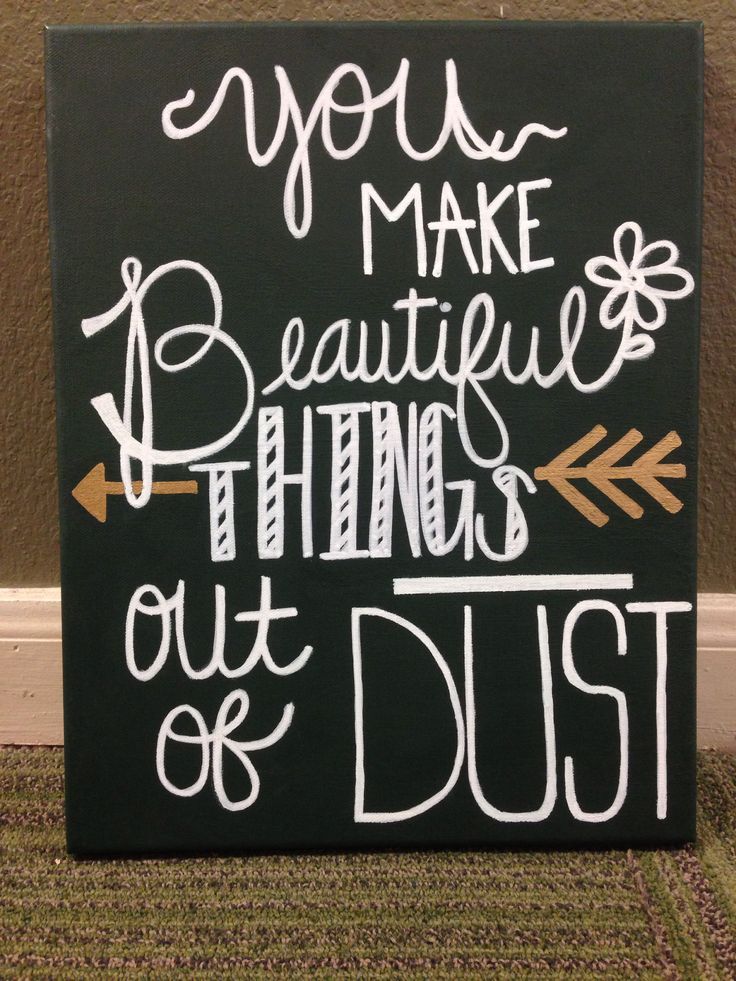 you
MAKE
Beautiful
THINGS
out
of
DUST